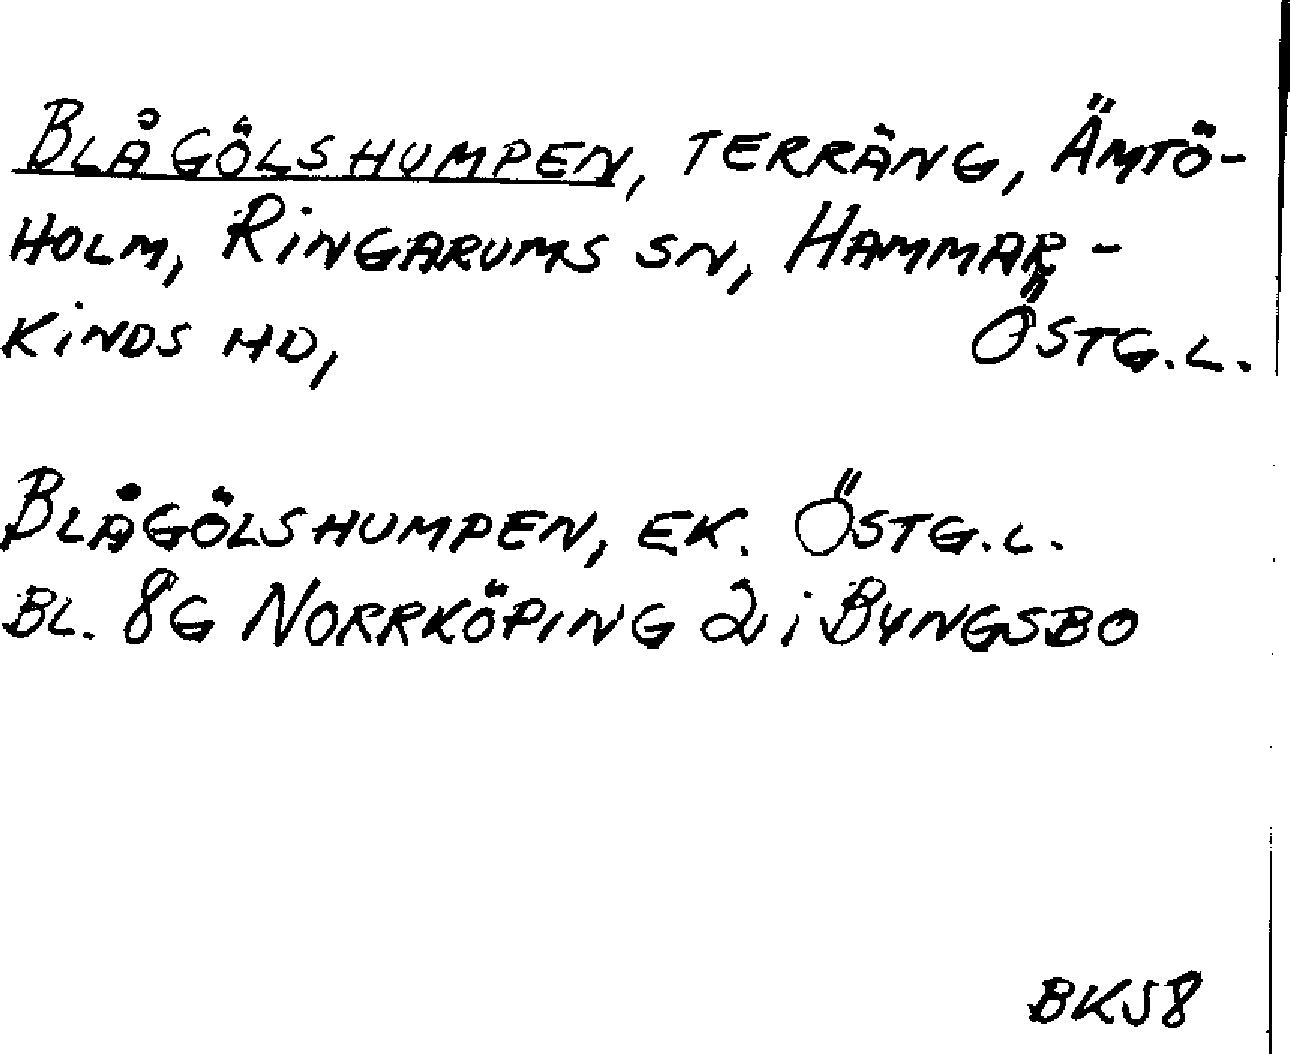 BLÅGÖLSHUMPEN, TERRÄNG, ÄMTÖ-
HOLM, RINGARUMS SN, HAMMAR-
KINDS HD, ÖSTG.L.
BLÅGÖLSHUMPEN, EK. ÖSTG.L.
BL. 8G NORRKÖPING 2i BYNGSBO
BK58